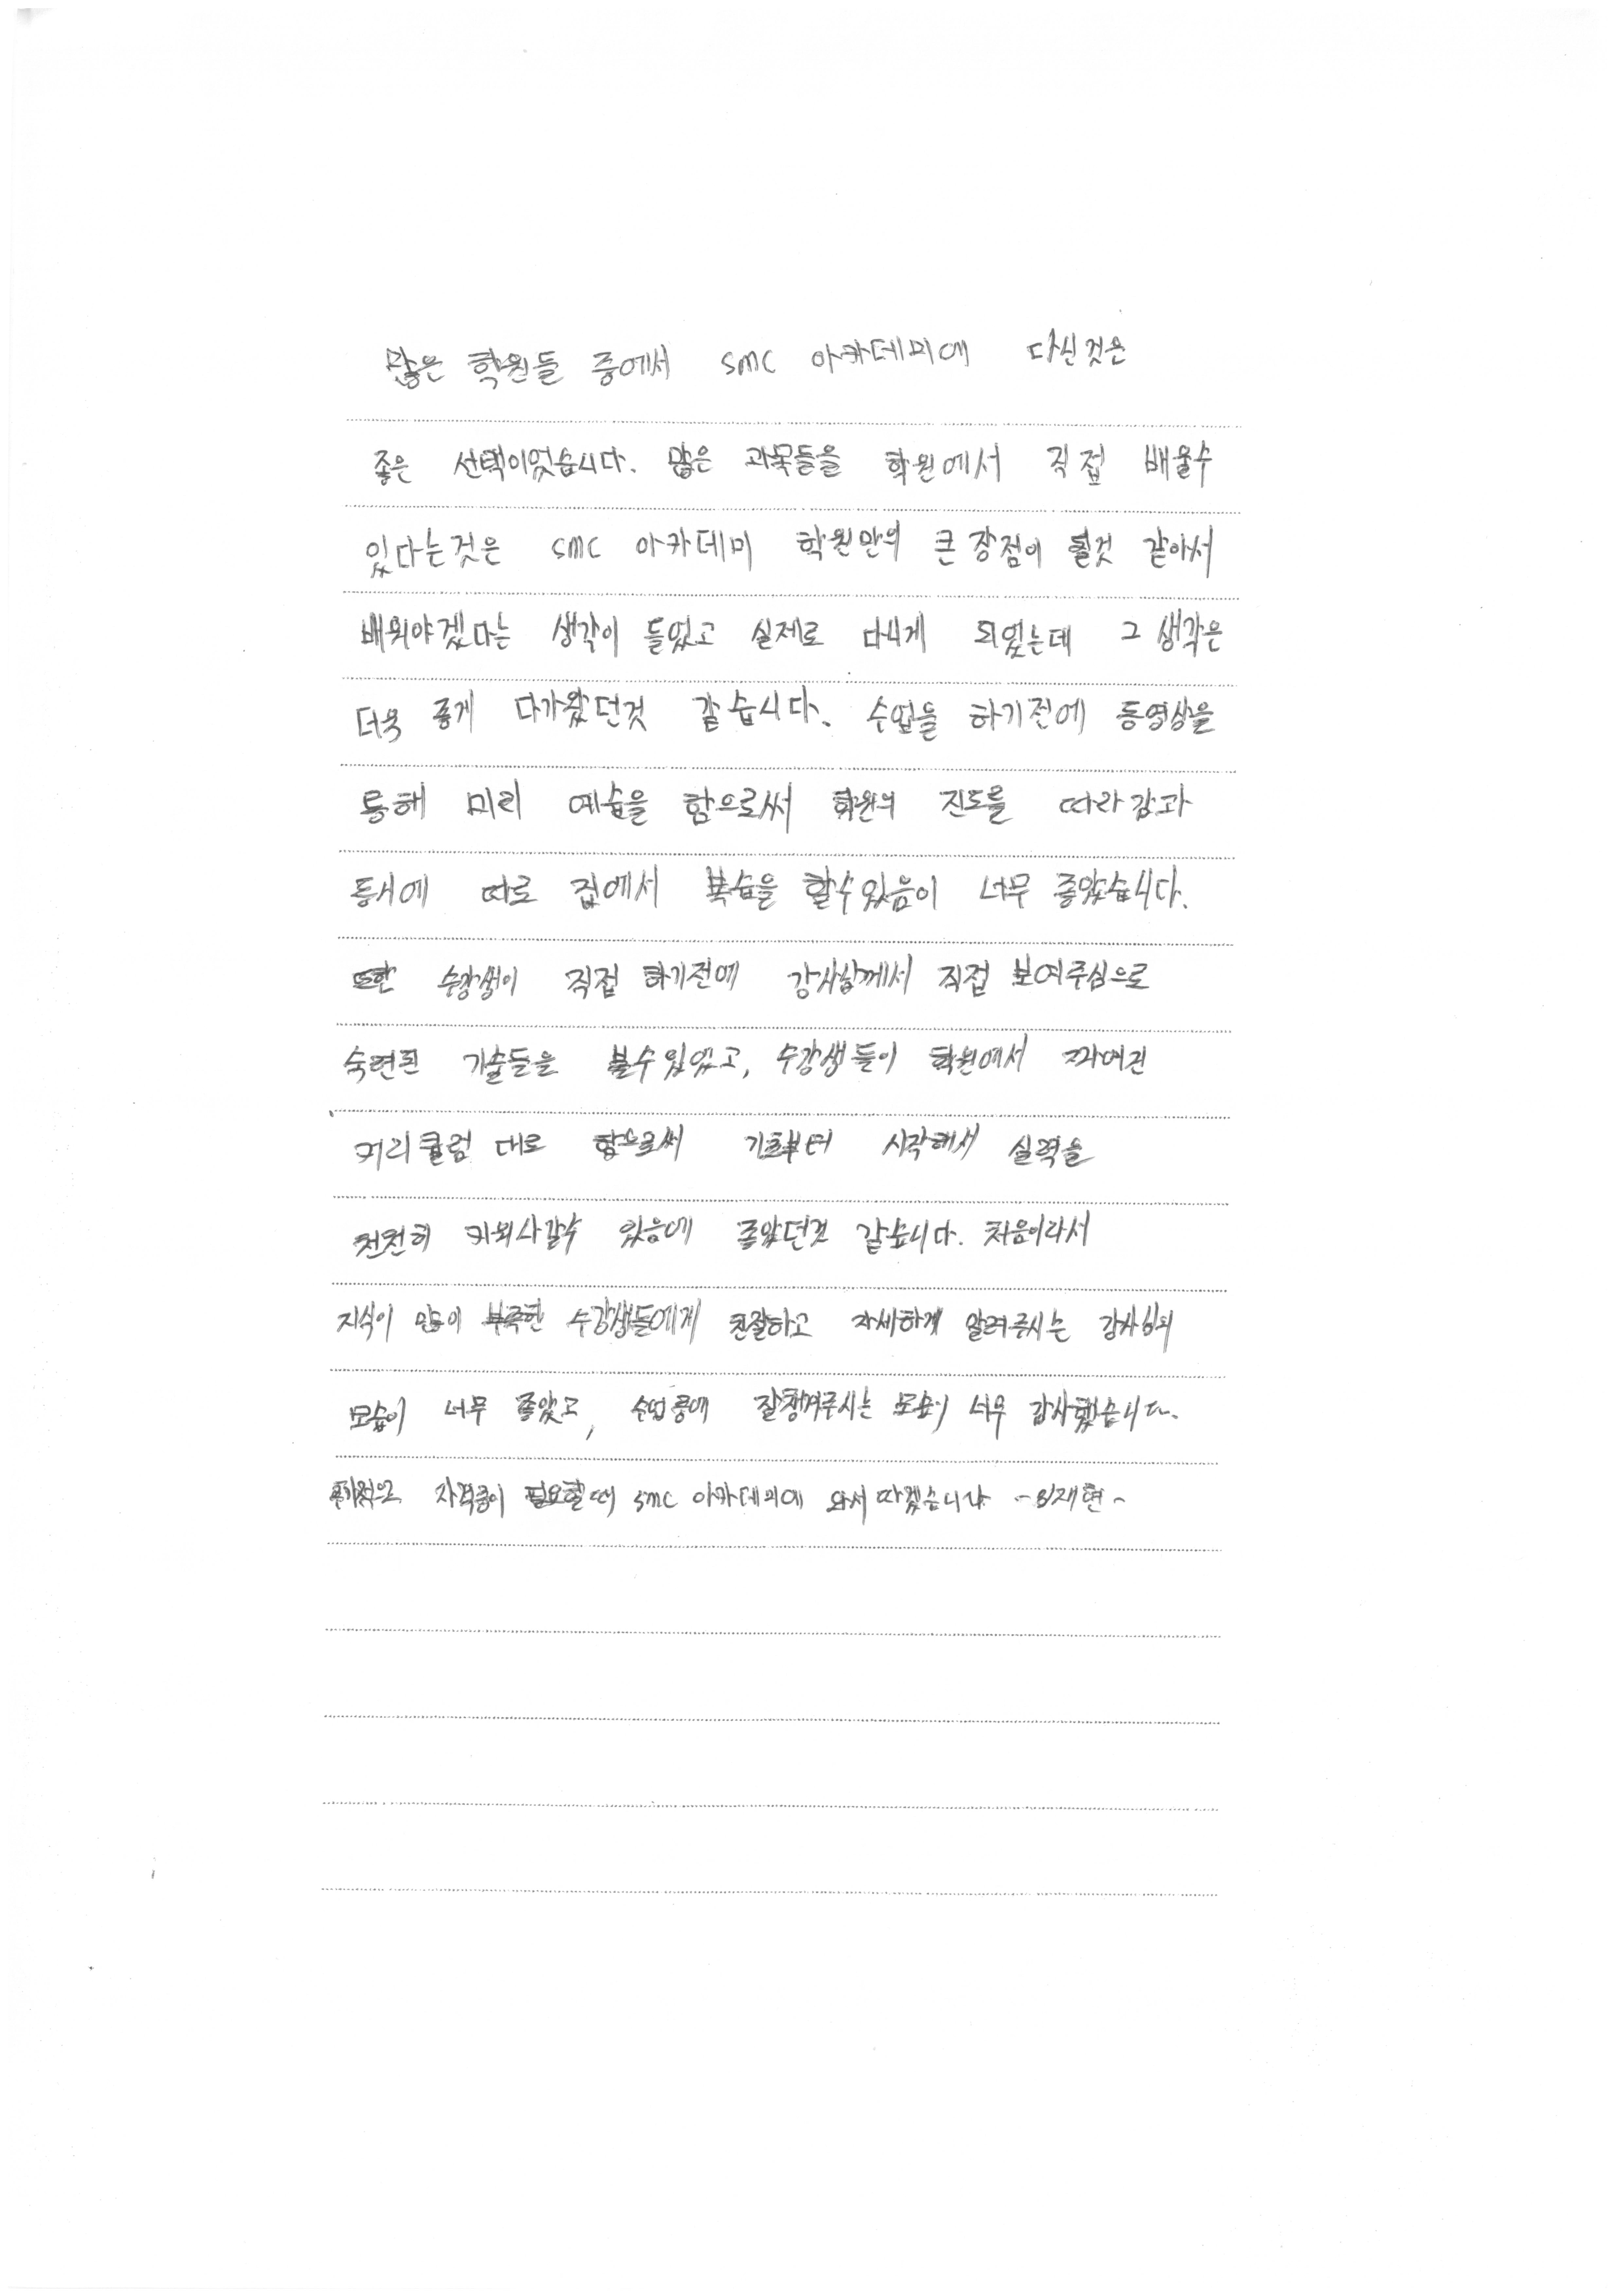 많은 학원들 중에서 SMC 아카데미에 다닌것은
좋은 선택이었습니다. 많은 과목들을 학원에서 직접 배울수
있다는것은 SMC 아카데미 학원만의 큰 장점이 될것 같아서
배워야겠다는 생각이 들었고 실제로 다니게 되었는데 그 생각은
더욱 좋게 다가왔던것 같습니다. 수업을 하기전에 동영상을
통해 미리 예습을 함으로써 학원의 진도를 따라감과
동시에 따로 집에서 복습을 할수있음이 너무 좋았습니다.
또한 수강생이 직접 하기전에 강사님께서 직접 보여주심으로
숙련된 기술들을 볼수있었고, 수강생들이 학원에서 짜여진
커리큘럼 대로 함으로써 기초부터 시작해서 실력을
천천히 키워나갈수 있음에 좋았던것 같습니다. 처음이라서
지식이 많이 부족한 수강생들에게 친절하고 자세하게 알려주시는 강사님의
모습이 너무 좋았고, 수업중에 잘챙겨주시는 모습이 너무 감사했습니다.
자격증이 필요할때 SMC 아카데미에 와서 따겠습니다 ~ 재현 ~